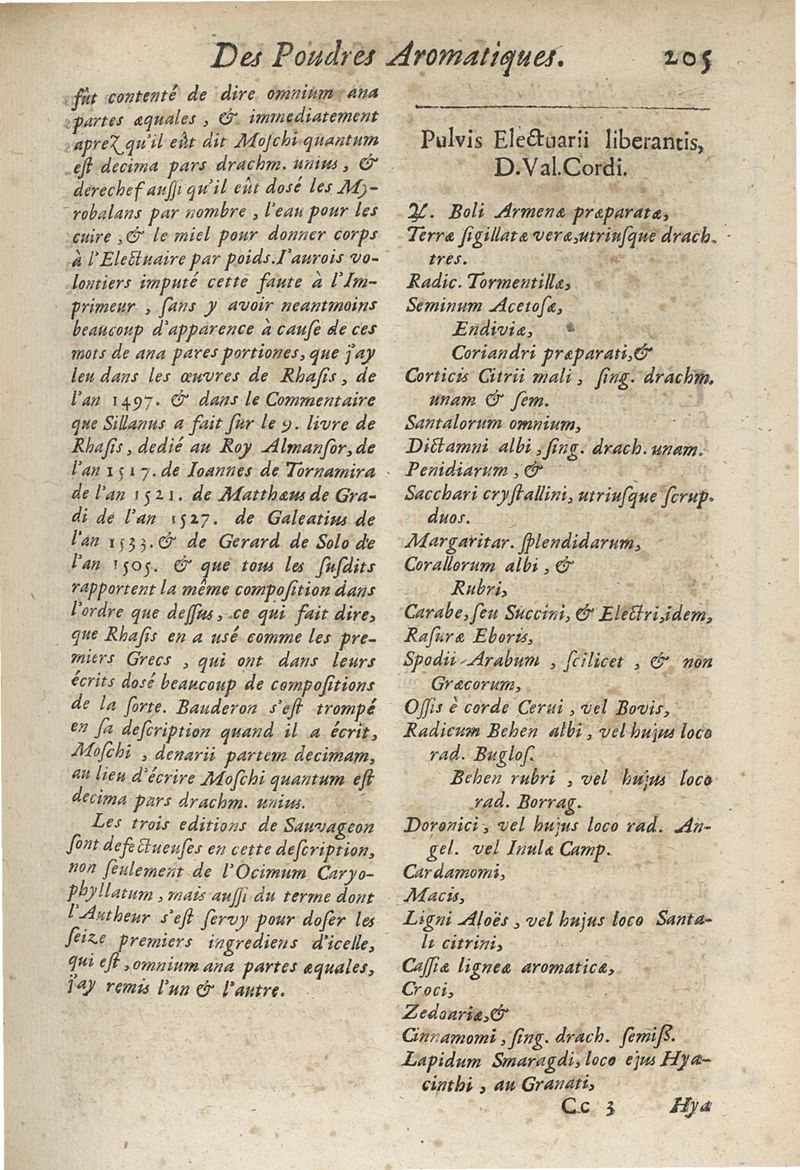 Des Poudres Aromatiques. 205
fût contenté de dire omnium ana
partes æquales, & immediatement
aprez qu'il eût dit Moſchi quantum
eſt decima pars drachm. unius, &
derechef auſſi qu'il eût doſé les My-
robalans par nombre, l'eau pour les
cuire, & le miel pour donner corps
à l'Electuaire par poids. I'aurois vo-
lontiers imputé cette faute à l'Im-
primeur, ſans y avoir neantmoins
beaucoup d'apparence à cauſe de ces
mots de ana pares portiones, que j'ay
leu dans les œuvres de Rhaſis, de
l'an 1497. & dans le Commentaire
que Sillanus a fait ſur le 9. livre de
Rhaſis, dedié au Roy Almanſor, de
l'an 1517. de Ioannes de Tornamira
de l'an 1521. de Matthæus de Gra-
di de l'an 1527. de Galeatius de
l'an 1533. & de Gerard de Solo de
l'an 1505. & que tous les ſuſdits
rapportent la même compoſition dans
l'ordre que deſſus, ce qui fait dire,
que Rhaſis en a usé comme les pre-
miers Grecs, qui ont dans leurs
écrits doſé beaucoup de compoſitions
de la ſorte. Bauderon s'eſt trompé
en ſa deſcription quand il a écrit,
Moſchi, denarii partem decimam,
au lieu d'écrire Moſchi quantum eſt
decima pars drachm. unius.
Les trois editions de Sauvageon
ſont defectueuſes en cette deſcription,
non ſeulement de l'Ocimum Caryo-
phyllatum, mais auſſi du terme dont
l'Autheur s'eſt ſervy pour doſer les
ſeize premiers ingrediens d'icelle,
qui eſt, omnium ana partes æquales,
j'ay remis l'un & l'autre.
Pulvis Electuarii liberantis,
D. Val. Cordi.
℞. Boli Armenæ præparatæ,
Terræ ſigillatæ veræ, utriuſque drach.
tres.
Radic. Tormentillæ,
Seminum Acetoſæ,
Endiviæ,
Coriandri præparati, &
Corticis Citrii mali, ſing. drachm.
unam & ſem.
Santalorum omnium,
Dictamni albi, ſing. drach. unam.
Penidiarum, &
Sacchari cryſtallini, utriuſque ſcrup.
duos.
Margaritar. ſplendidarum,
Corallorum albi, &
Rubri,
Carabe, ſeu Succini, & Electri, idem,
Raſuræ Eboris,
Spodii Arabum, ſcilicet, & non
Græcorum,
Oſſis è corde Cerui, vel Bovis,
Radicum Behen albi, vel hujus loco
rad. Bugloſ.
Behen rubri, vel hujus loco
rad. Borrag.
Doronici, vel hujus loco rad. An-
gel. vel Inulæ Camp.
Cardamomi,
Macis,
Ligni Aloës, vel hujus loco Santa-
li citrini,
Caſſiæ ligneæ aromaticæ,
Croci,
Zedoariæ, &
Cinnamomi, ſing. drach. ſemiß.
Lapidum Smaragdi, loco ejus Hya-
cinthi, au Granati,
Cc 3 Hya